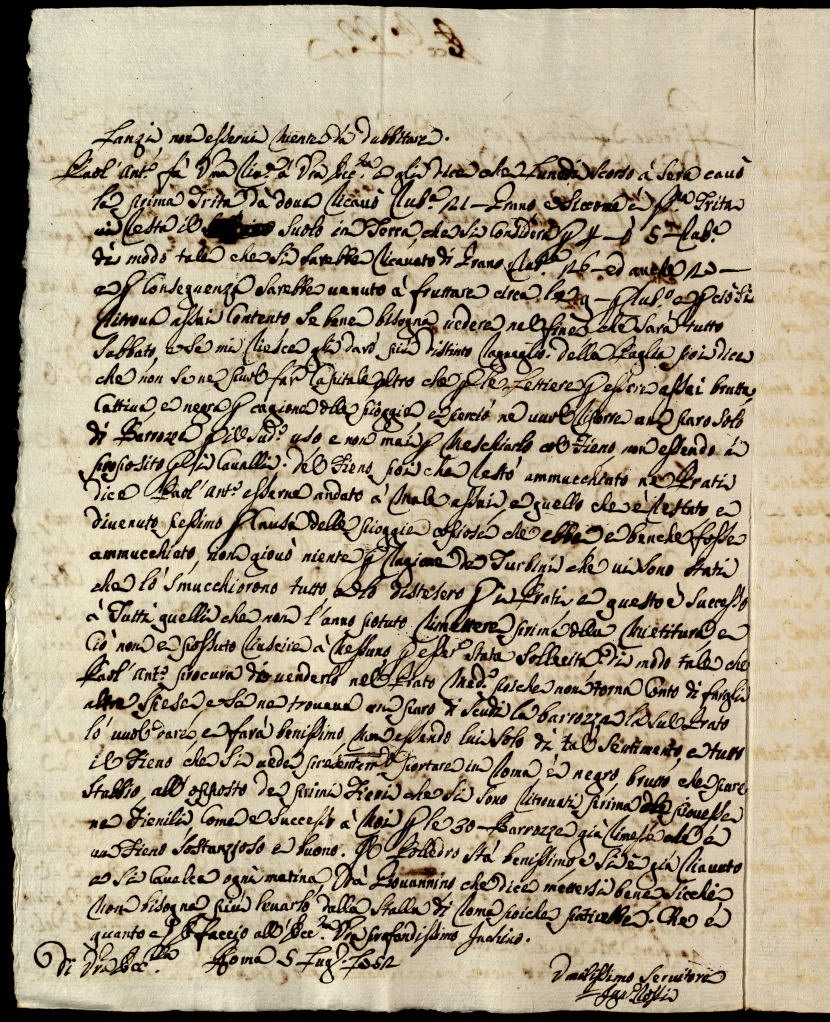 Fanzia non esservi niente da dubbitare.
Paol' Ant.º fà Vna Riu.ª à Vra Ecc.za e gli dice che Lunedi scorso à sera cauò
la prima Trita da doue ricauò Rub.ª 121 — Grano e siccome è p.ma Trita
ui resta il suolo in Terra, che si considera p 4 — ò 5 — Rub.ª
di modo tale che si sarebbe ricauato di Grano Rub.ª 126 — ed anche
e p Conseguenza sarebbe uenuto à fruttare circa p Rub.º e p ciò si
ritroua assai Contento se bene bisogna uedere nel fine che sarà tutto
Sabbato, e se mi riesce gli darò più distinto raguaglio. della Paglia poi dice
che non se ne può far Capitale altro che p le Lettiere p essere assai brutta,
Cattiua, e negra p cagione delle pioggie e perciò ne uuol riporre un paro solo
di Barrozza p il sud.º uso e non mai p meschiarlo col Fieno non essendo à
proposito p li Caualli. del Fieno poi che restò ammucchiato ne Prati
dice Paol' Ant.º esserne andato à male assai, e quello che è restato e
diuenuto pessimo p causa delle pioggie copiose che ebbe e benche fosse
ammucchiato, non giouò niente p ragione de Turbini che ui sono stati
che lo smucchiorono tutto e lo distesero p i Prati, e questo è successo
à Tutti quelli che non l'anno potuto rimettere prima della Mietitura e
Ciò non è possuto riuscire à nessuno p esser stata sollecita. di modo tale che
Paol' Ant.º procura di uenderlo nel Prato Med.º poiche non torna Conto di farglia
altre spese, e se ne trouaua un paro di scudi la barrozza là sul Prato
lo uuol dare, e farà benissimo, non essendo lui solo di tal sentimento, e tutto
il Fieno che si uede presentem.te portare in Roma, è negro, brutto che pare
stabbio all' opposto de primi Fieni che si sono ritrouati prima che piouesse
ne Fienili come è successo à Noi p le 30 — Barrozze già rimesse che è
un Fieno sostanzioso e buono. Il Polledro stà benissimo e si è già riauuto
e si Caualca ogni matina, Da Giouannino che dice mettersi bene sicche
non bisogna più leuarlo dalla Stalla di Roma poiche patirebbe. Che è
quanto e p f faccio all' Ecc.za Vra profondissimo Inchino.
Di Vra Ecc.za Roma 5 Lug.º
Deuotissimo Seruitore
Rossi